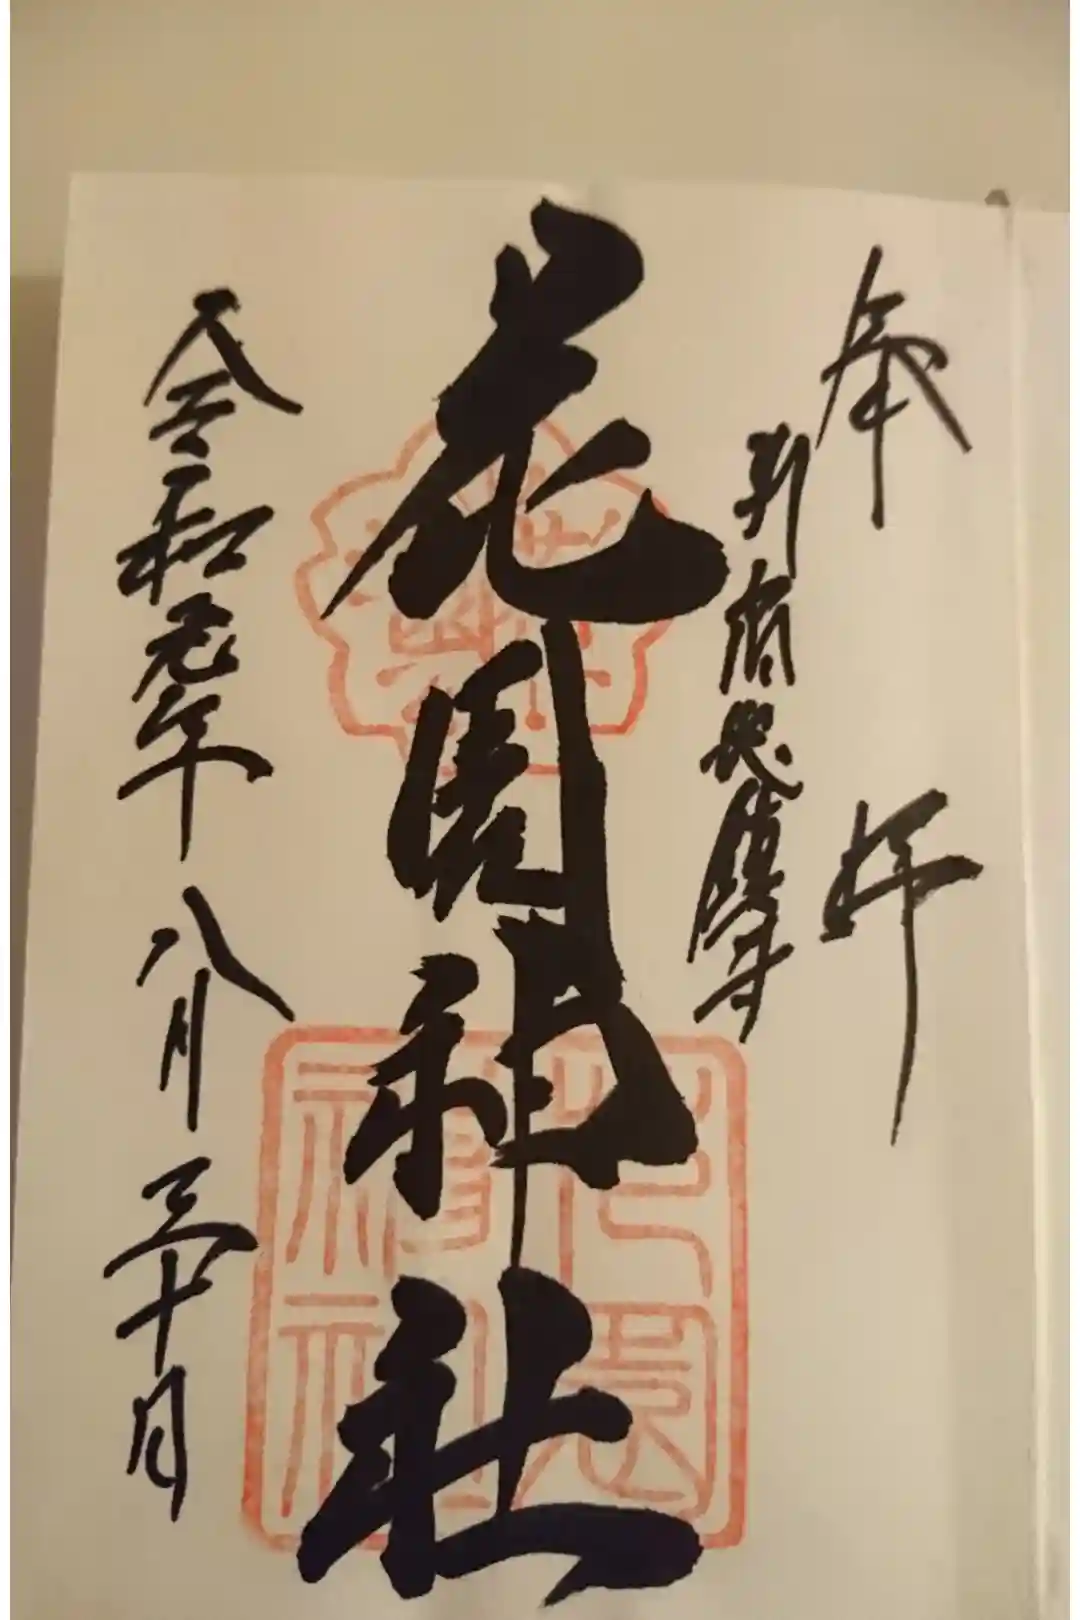 奉拝
新宿総鎮守
花園神社
令和元年八月三十日
花園神社